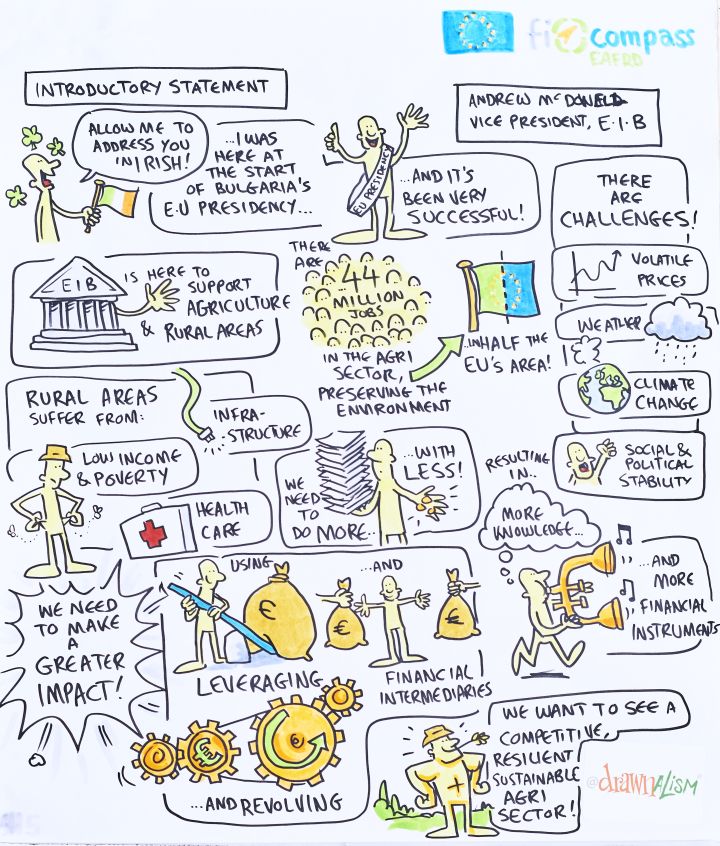 fi compass
EAFRD
INTRODUCTORY STATEMENT
ANDREW McDONALD
VICE PRESIDENT, E.I.B
ALLOW ME TO
ADDRESS YOU
IN IRISH!
...I WAS
HERE AT
THE START
OF BULGARIA'S
E.U PRESIDENCY...
EU PRESIDENCY
...AND IT'S
BEEN VERY
SUCCESSFUL!
THERE
ARE
CHALLENGES!
VOLATILE
PRICES
WEATHER
CLIMATE
CHANGE
SOCIAL &
POLITICAL
STABILITY
EIB
IS HERE TO
SUPPORT
AGRICULTURE
& RURAL AREAS
THERE
ARE
44
MILLION
JOBS
IN THE AGRI
SECTOR,
PRESERVING THE
ENVIRONMENT
...IN HALF THE
EU'S AREA!
RURAL AREAS
SUFFER FROM:
INFRA-
-STRUCTURE
LOW INCOME
& POVERTY
HEALTH
CARE
WE
NEED
TO
DO MORE...
...WITH
LESS!
RESULTING
IN..
MORE
KNOWLEDGE...
...AND
MORE
FINANCIAL
INSTRUMENTS
WE NEED
TO MAKE
A
GREATER
IMPACT!
USING
€
LEVERAGING
...AND
€
€
FINANCIAL
INTERMEDIARIES
...AND REVOLVING
WE WANT TO SEE A
COMPETITIVE,
RESILIENT
SUSTAINABLE
AGRI
SECTOR!
@drawnalism